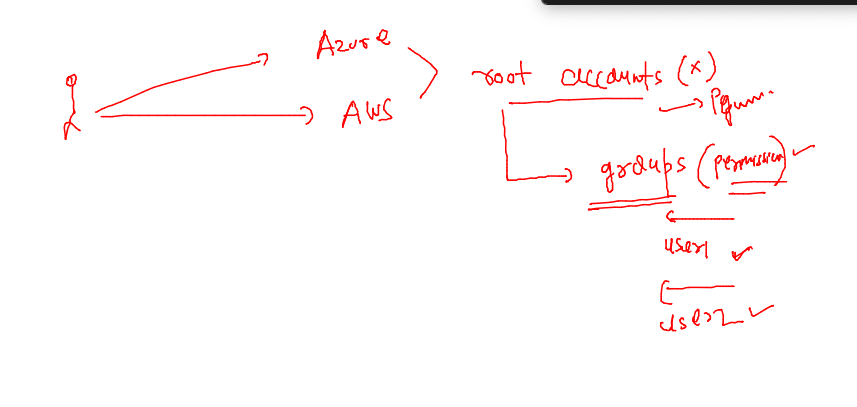 Azure
AWS
root accounts (x)
groups (permission) ✓
user1 ✓
user2 ✓